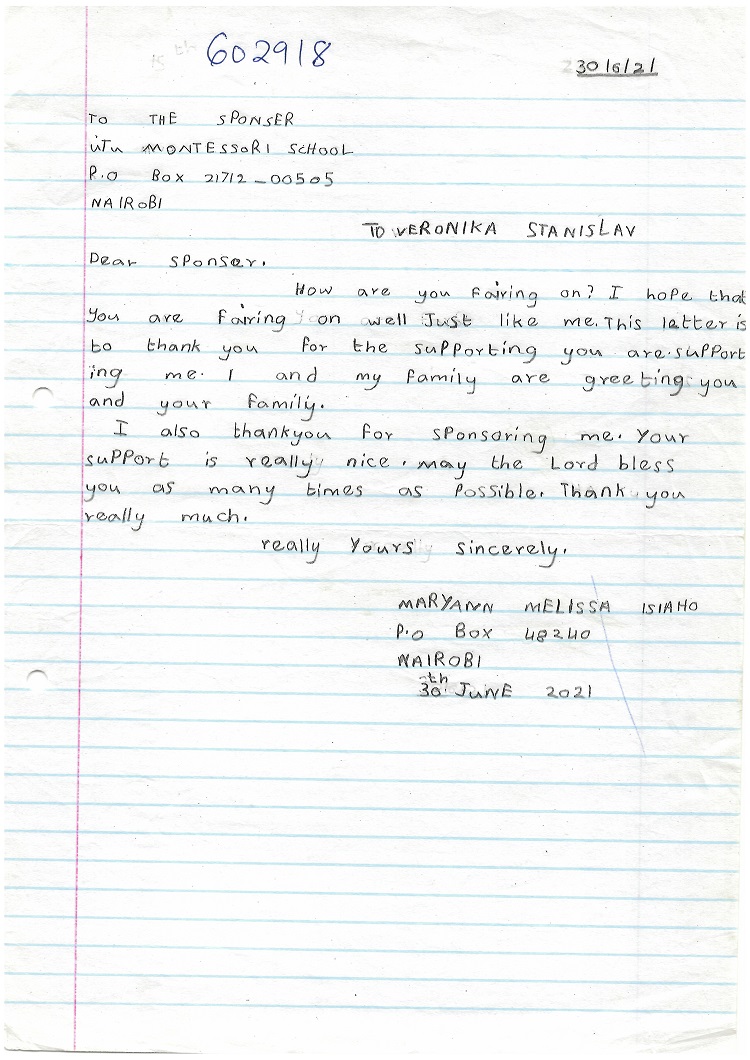 602918
30/6/21
TO THE SPONSER
UTU MONTESSORI SCHOOL
P.O BOX 21712 - 00505
NAIROBI
TO VERONIKA STANISLAV
Dear sponser.
How are you fairing on? I hope that
you are fairing on well Just like me. This letter is
to thank you for the supporting you are support
ing me. I and my family are greeting you
and your family.
I also thankyou for sponsoring me. Your
support is really nice. may the Lord bless
you as many times as possible. Thank you
really much.
really Yours sincerely.
MARYANN MELISSA ISIAHO
P.O BOX 48240
NAIROBI
30th JUNE 2021